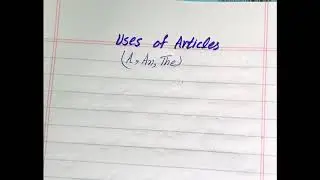 Uses of Articles
(A, An, The)